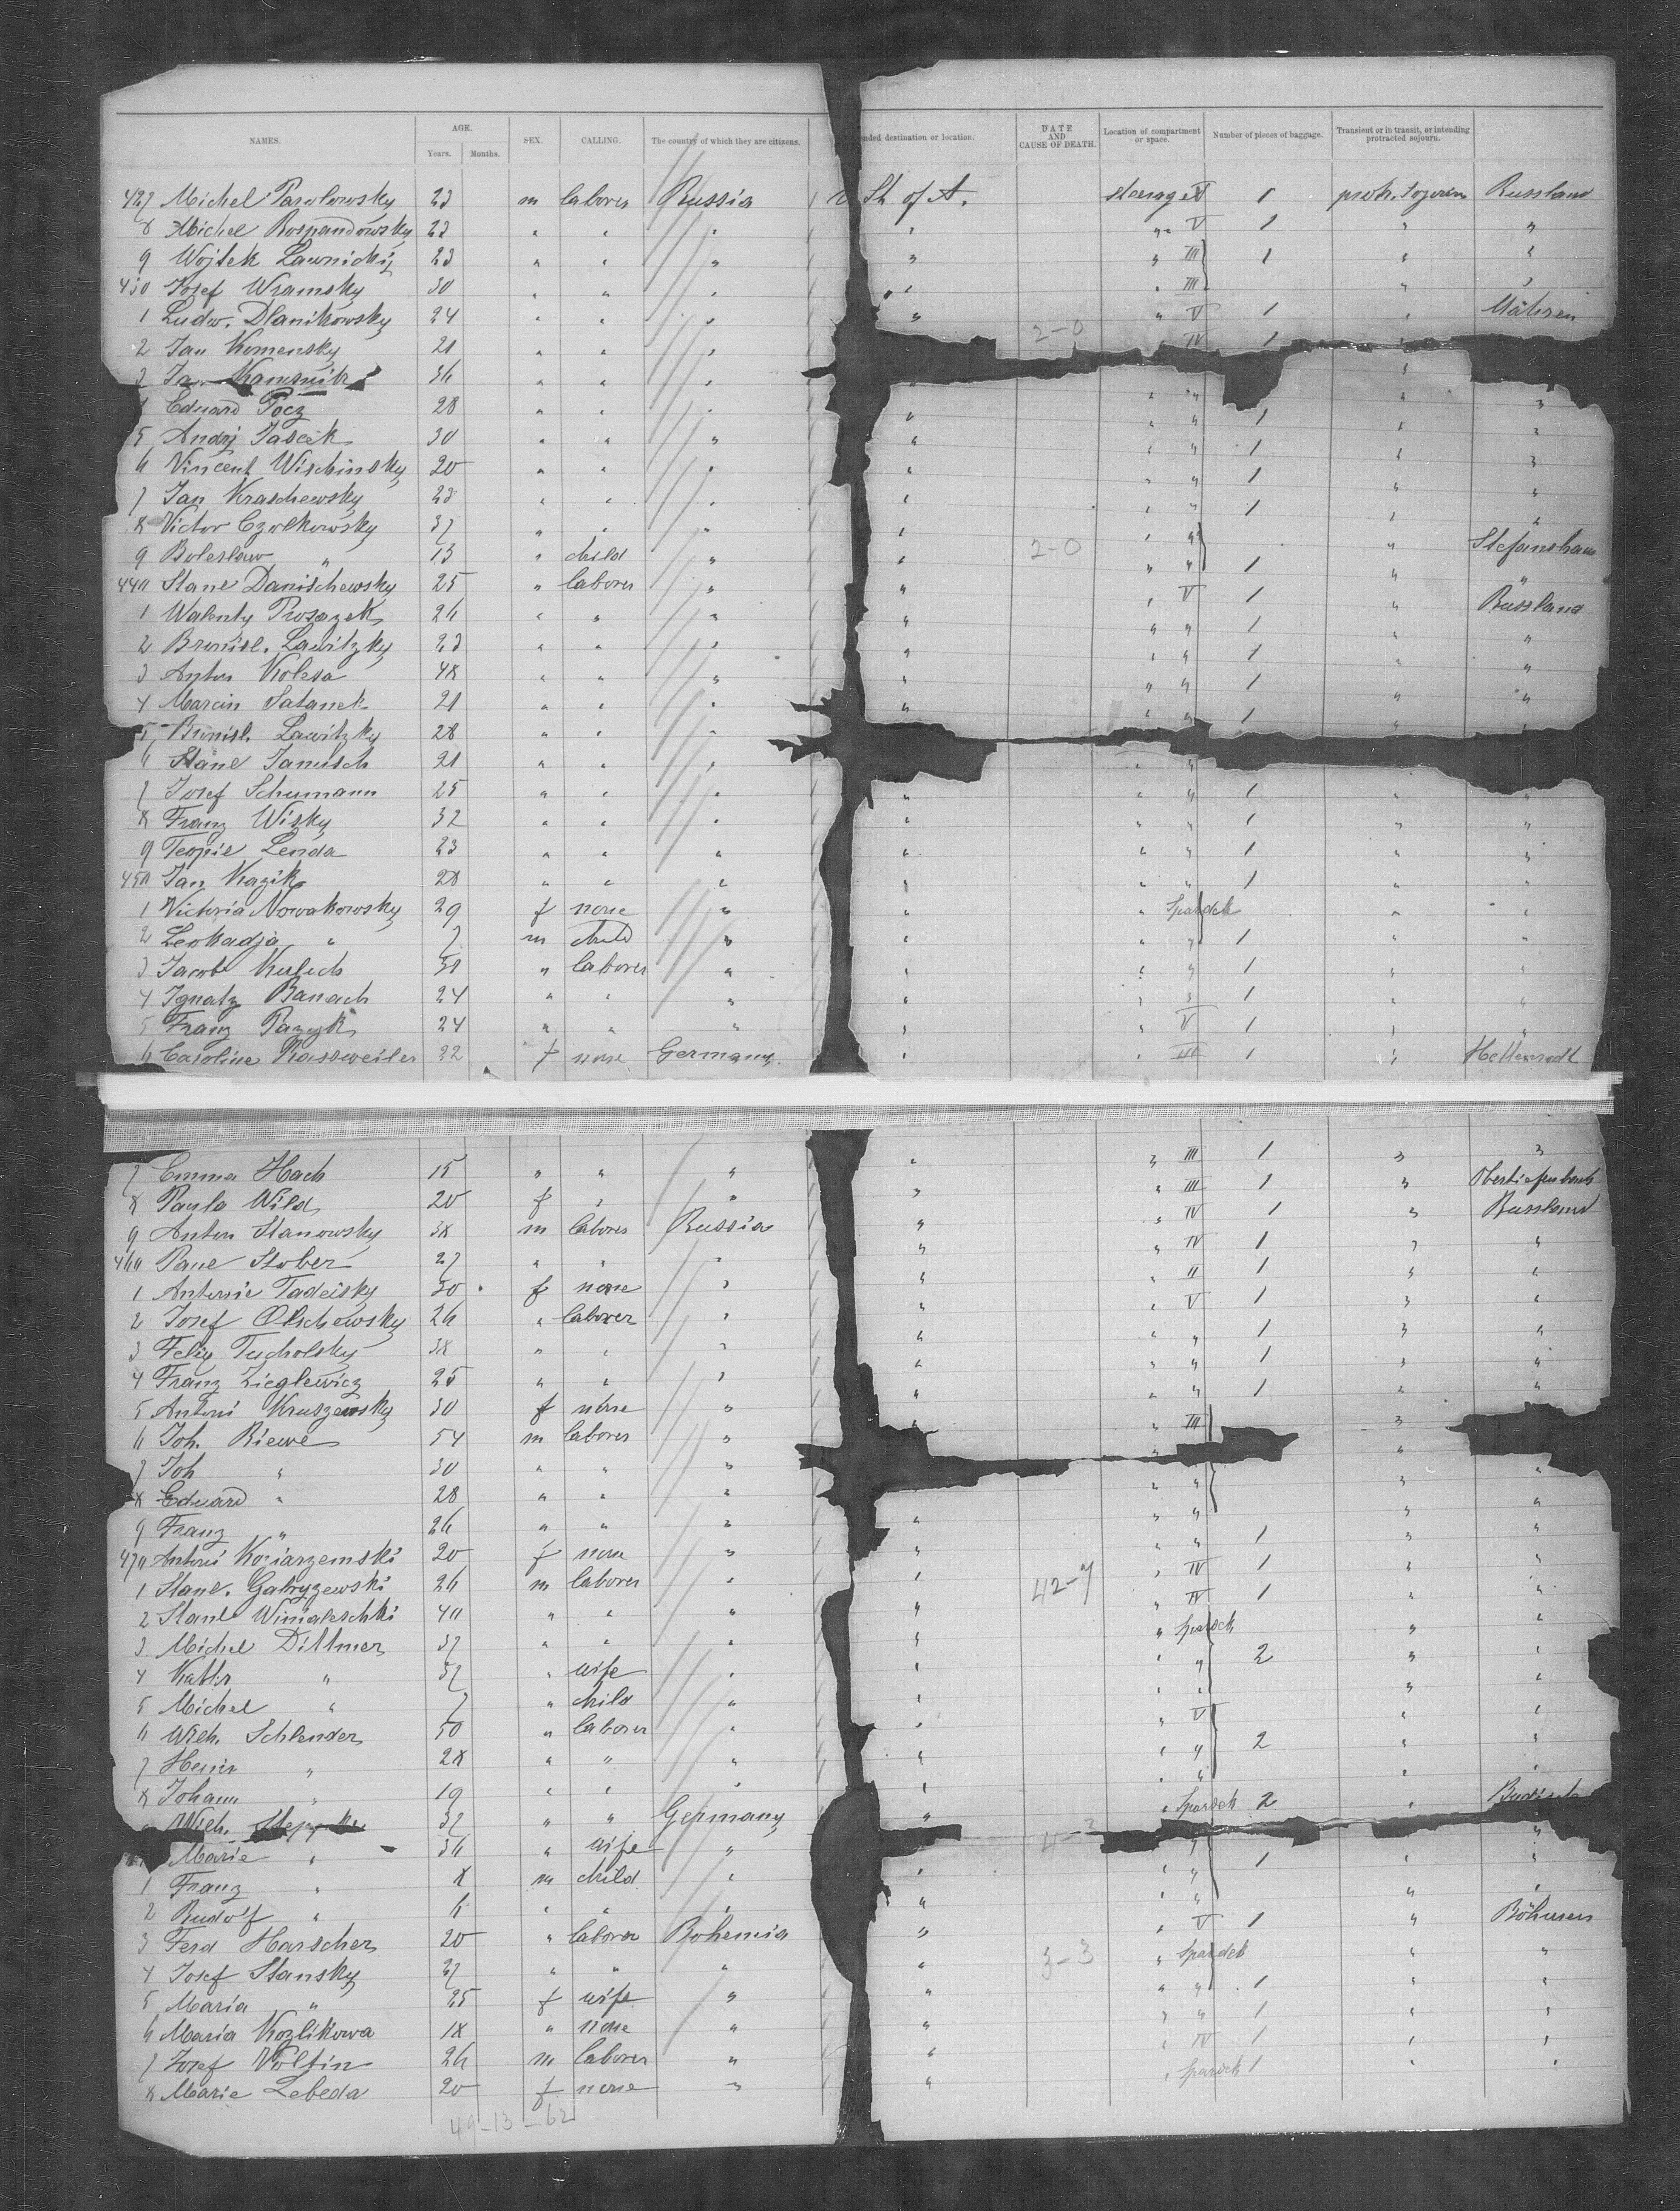 NAMES. AGE. Years. Months. SEX. CALLING. The country of which they are citizens. nded destination or location. DATE AND CAUSE OF DEATH. Location of compartment or space. Number of pieces of baggage. Transient or in transit, or intending protracted sojourn.
427 Michel Pawlowsky 23 m laborer Russia St of A. steerage V 1 Russland
8 Michel Rospandowsky 23 " " " " " V 1 " "
9 Wojtek Lawnicky 23 " " " " " III 1 " "
430 Josef Wramsky 30 " " " " " III " "
1 Ludw. Dlanikowsky 24 " " " " " V 1 " Mähren
2 Jan Komensky 21 " " " 2-0 IV 1
3 Kamsnik 36 " " " "
Eduard Pocz 28 " " " " " " " "
5 Andrj Jascek 30 " " " " " " 1 " "
6 Vincent Wischinsky 20 " " " " " " 1 " "
7 Jan Kraschewsky 23 " " " " " " 1 " "
8 Victor Czolkowsky 37 " " " " " " 1 " "
9 Boleslaw " 13 " child " " 2-0 " " " Stefansham
440 Stanl Danischewsky 25 " laborer " " " " 1 " "
1 Walenty Prosazek 26 " " " " " V 1 " Russland
2 Bronisl. Lawitzky 23 " " " " " " 1 " "
3 Anton Kolesa 48 " " " " " " 1 " "
4 Marcin Satanek 21 " " " " " " 1 " "
5 Bronisl. Lawitzky 28 " " " " " 1
6 Stanl Janusch 21 " " " " "
7 Josef Schumann 25 " " " " " " 1 " "
8 Franz Wisky 32 " " " " " " 1 " "
9 Teopie Lenda 23 " " " " " " 1 " "
450 Jan Kazik 28 " " " " " " 1 " "
1 Victoria Nowakowsky 29 f none " " " Spardek " "
2 Leokadja " 7 m child " " " " 1 " "
3 Jacob Kulich 31 " laborer " " " " 1 " "
4 Ignatz Banach 24 " " " " " " 1 " "
5 Franz Pazyk 24 " " " " " V 1 " "
6 Caroline Rassweiler 22 f none Germany " " III 1 " Hettenrodt
7 Emma Hach 15 " " " " " III 1 " "
8 Paula Wild 20 f " " " " III 1 " Obertiefenbach
9 Anton Stanowsky 38 m laborer Russia " " IV 1 " Russland
460 Paul Stober 27 " " " " " IV 1 " "
1 Antonie Tadeisky 30 f none " " " II 1 " "
2 Josef Olschewsky 26 " laborer " " " V 1 " "
3 Felix Tucholsky 38 " " " " " " 1 " "
4 Franz Zieglewicz 25 " " " " " " 1 " "
5 Antoni Kruszewsky 30 f none " " " " 1 " "
6 Joh. Riewe 54 m laborer " " " III "
7 Joh " 30 " " " " "
8 Eduard " 28 " " " " " " "
9 Franz " 26 " " " " " " " "
470 Antoni Koziarzemski 20 f none " " " " 1 " "
1 Stanl. Gabryzewski 26 m laborer " " 42-7 " IV 1 " "
2 Stanl 40 " " " " " IV 1 " "
3 Michel Dittmer 37 " " " " " Spardek " "
4 Kathr " 32 " wife " " " " 2 " "
5 Michel " 7 " child " " " " " "
6 Wilh. Schlender 50 " laborer " " " V " "
7 Heinr " 28 " " " " " " 2 " "
8 Johann " 19 " " " " " " " "
Wilh. 32 " " Germany " " Spardek 2 "
Marie " 36 " wife " 4-3 " "
1 Franz " 8 m child " " " " 1 " "
2 Rudolf " 6 " " " " " " " "
3 Ferd Harscher 20 " laborer Bohemia " " V 1 " Böhmen
4 Josef Stansky 27 " " " " 3-3 " Spardek " "
5 Maria " 25 f wife " " " " 1 " "
6 Maria Kozlikowa 18 " none " " " " 1 " "
7 Josef Voltin 26 m laborer " " " IV 1 " "
8 Marie Lebeda 20 f none " " " Spardek 1 " "
49-13-62